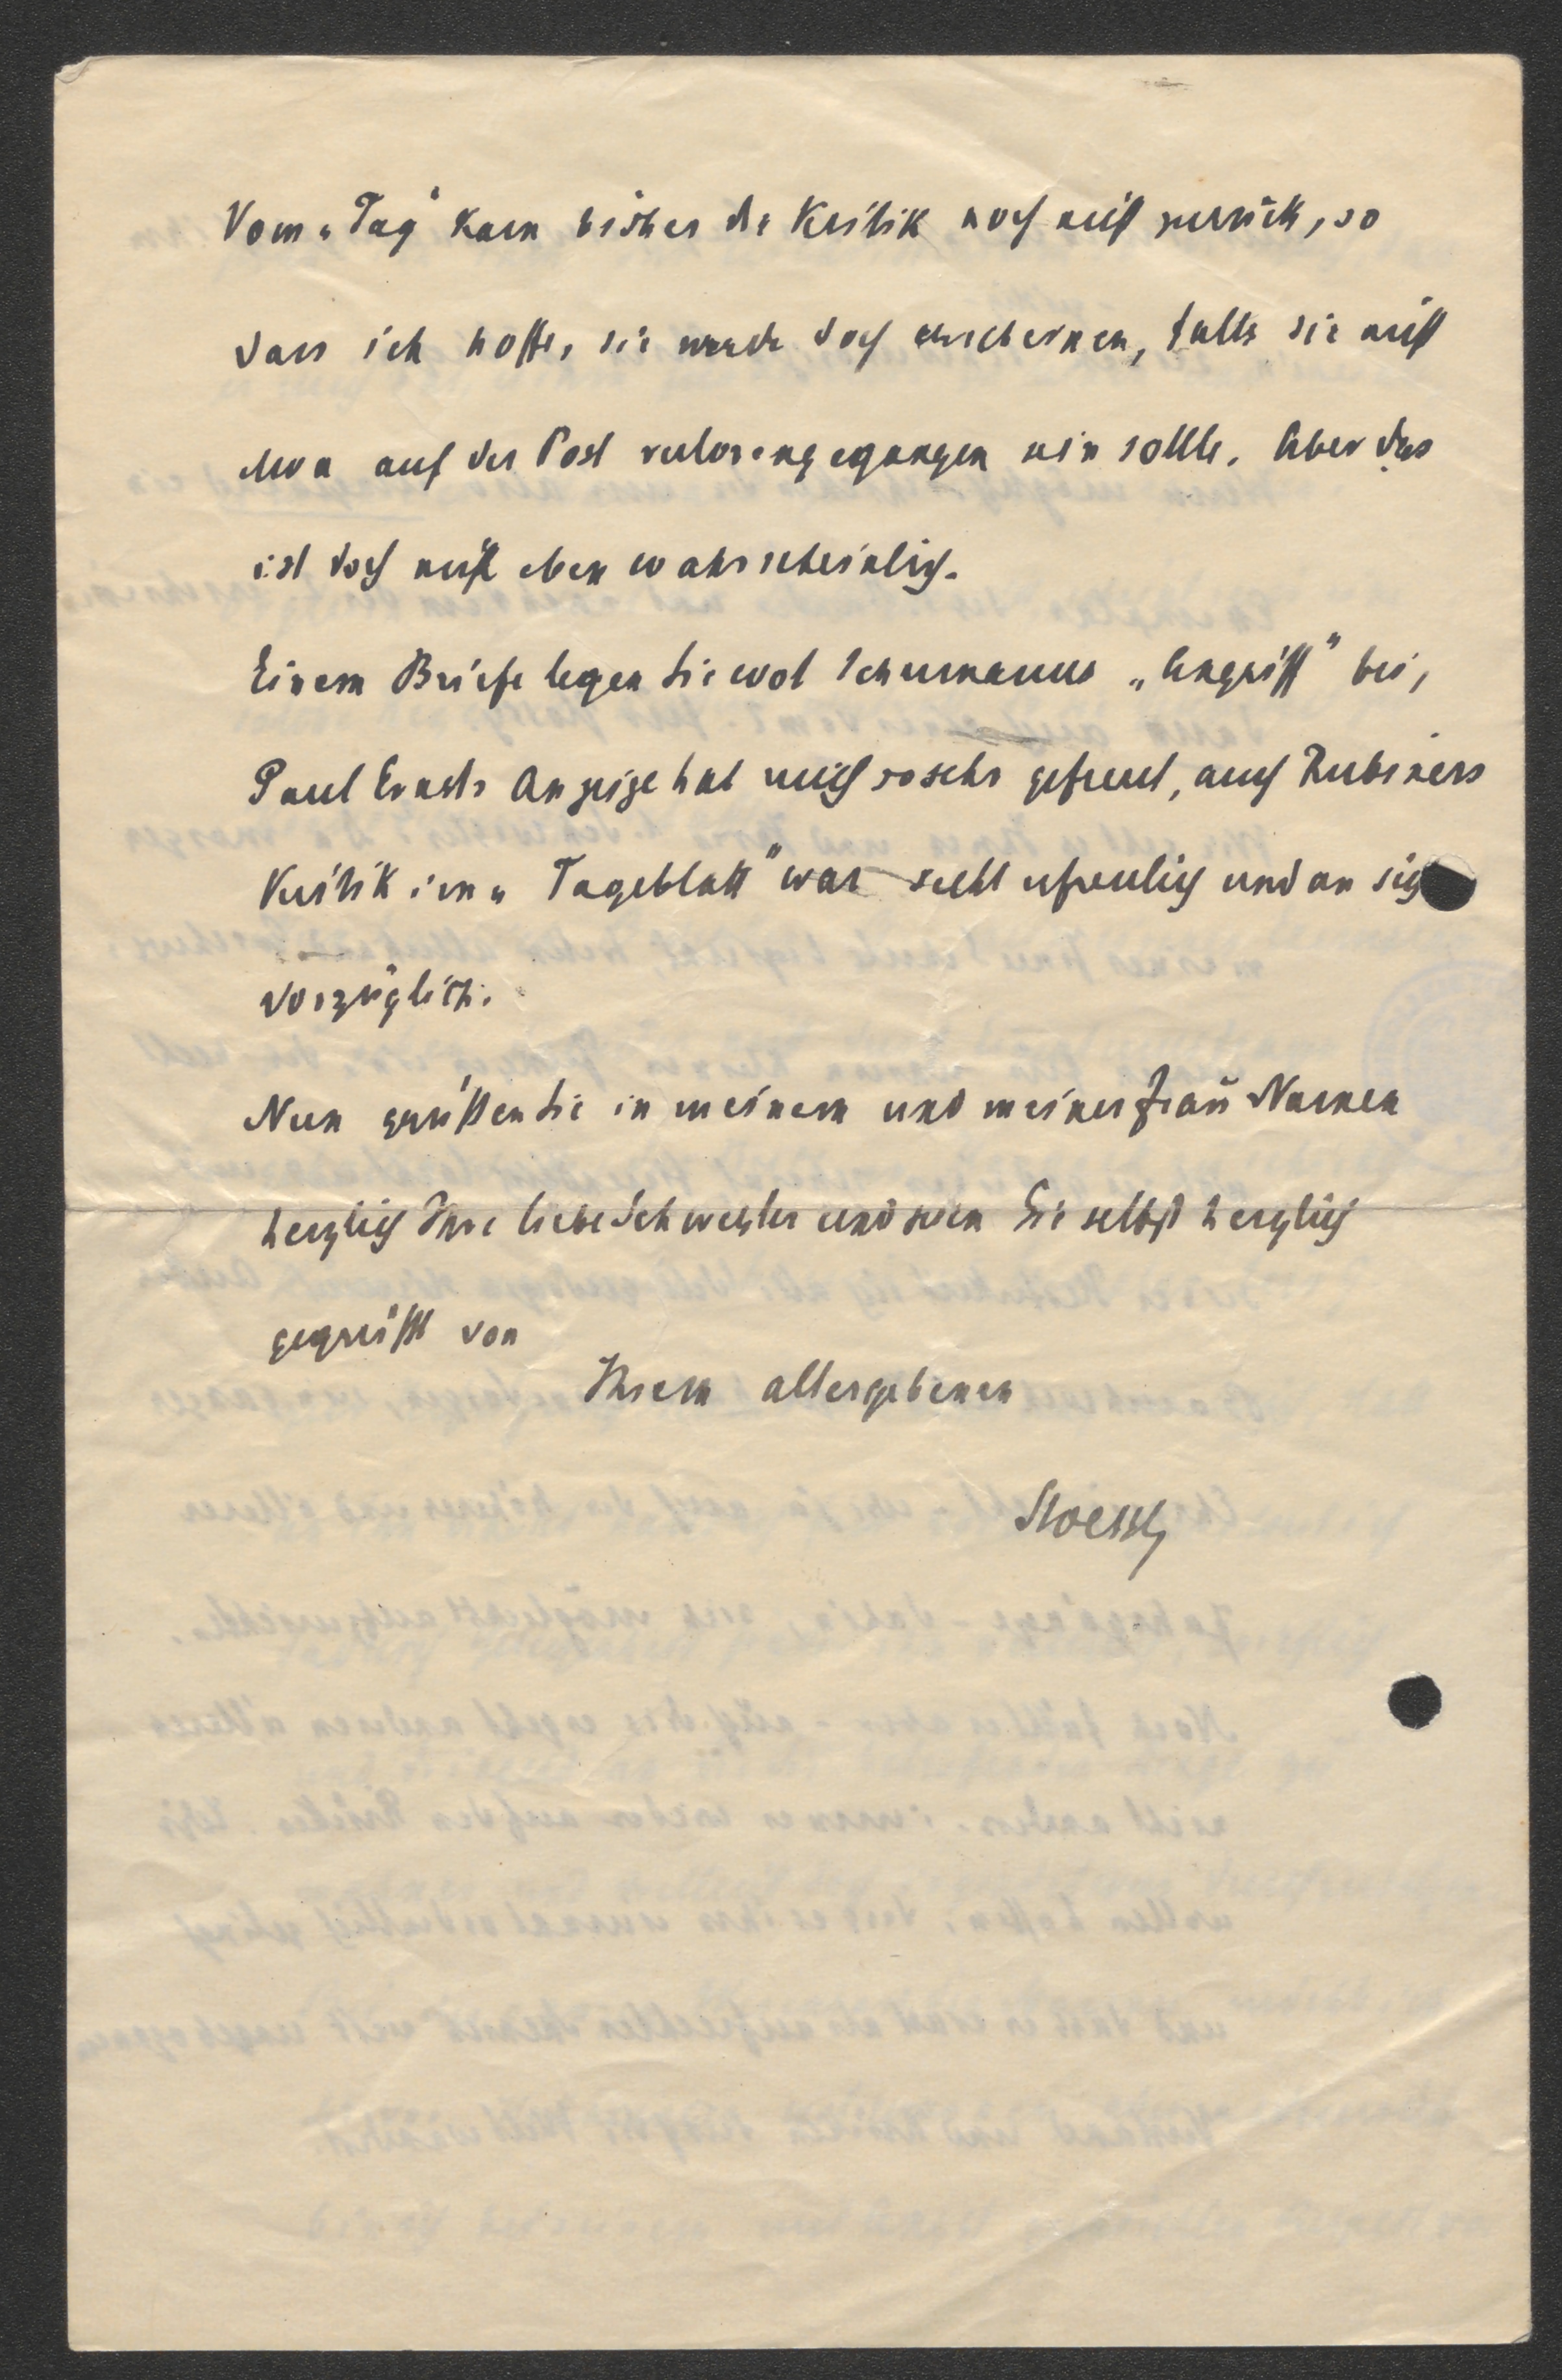 Vom „Tag“ kam bisher die Kritik noch nicht zurück, so
dass ich hoffe, sie werde doch erscheinen, falls sie nicht
etwa auf der Post verlorengegangen sein sollte. Aber das
ist doch nicht eben wahrscheinlich.
Einem Briefe legen Sie wol Schumanns „Angriff“ bei,
Paul Ernsts Anzeige hat mich so sehr gefreut, auch Rubiners
Kritik im „Tageblatt“ war recht erfreulich und an sich
vorzüglich.
Nun grüßen Sie in meinem und meiner Frau Namen
herzlich Ihre liebe Schwester und seien Sie selbst herzlich
gegrüßt von
Ihrem altergebenen
Stoessl